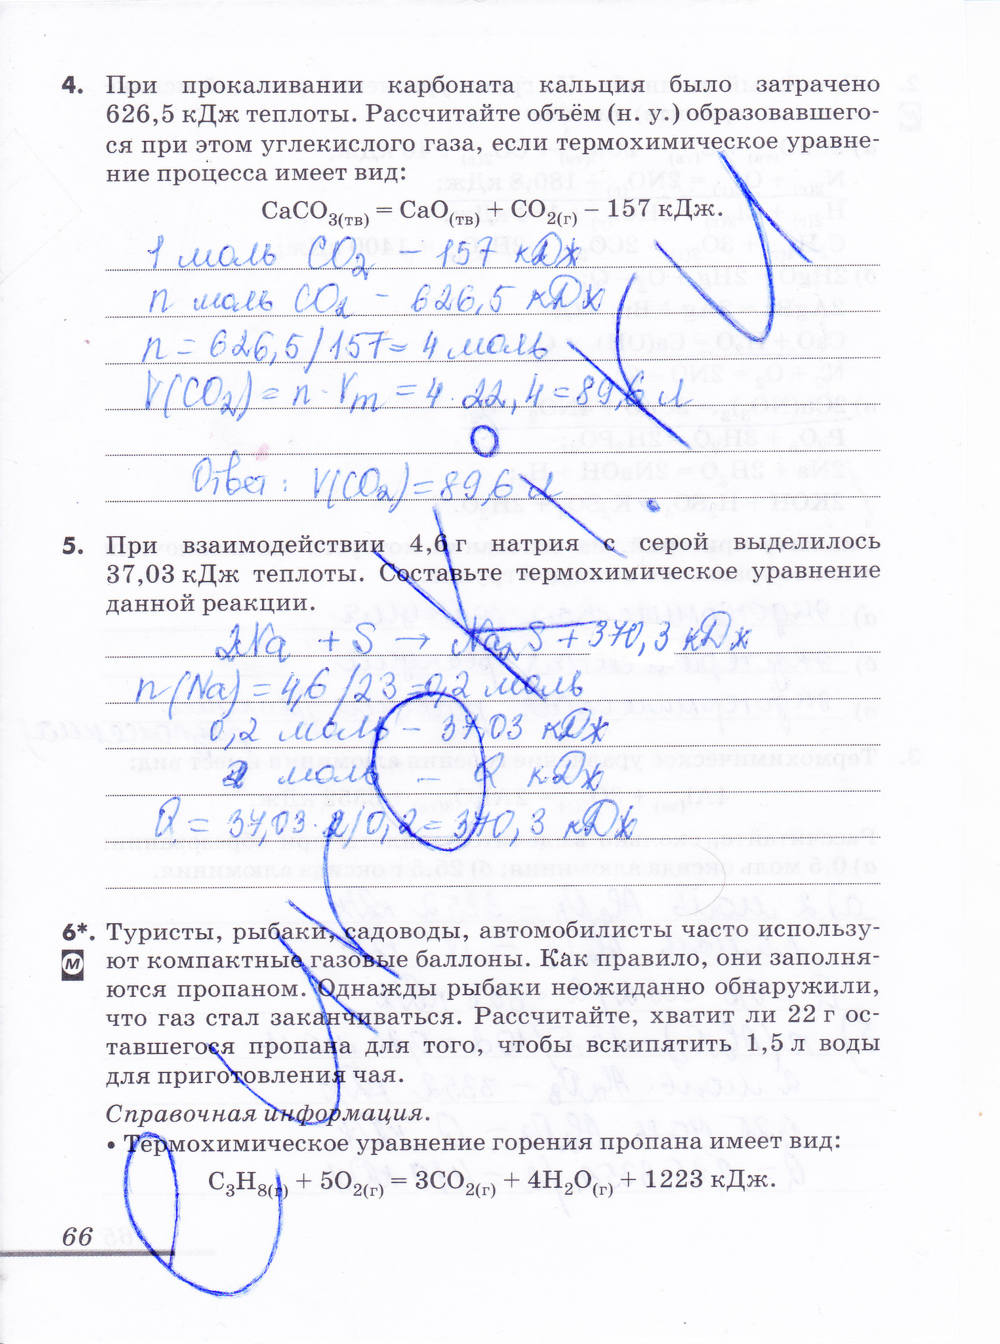 4. При прокаливании карбоната кальция было затрачено
626,5 кДж теплоты. Рассчитайте объём (н. у.) образовавшего-
ся при этом углекислого газа, если термохимическое уравне-
ние процесса имеет вид:
CaCO3(тв) = CaO(тв) + CO2(г) – 157 кДж.
1 моль CO2 – 157 кДж
n моль CO2 – 626,5 кДж
n = 626,5/157 = 4 моль
V(CO2) = n · Vm = 4 · 22,4 = 89,6 л
Ответ: V(CO2) = 89,6 л
5. При взаимодействии 4,6 г натрия с серой выделилось
37,03 кДж теплоты. Составьте термохимическое уравнение
данной реакции.
2Na + S → Na2S + 370,3 кДж
n(Na) = 4,6/23 = 0,2 моль
0,2 моль – 37,03 кДж
2 моль – Q кДж
Q = 37,03 · 2/0,2 = 370,3 кДж
6*. Туристы, рыбаки, садоводы, автомобилисты часто использу-
М ют компактные газовые баллоны. Как правило, они заполня-
ются пропаном. Однажды рыбаки неожиданно обнаружили,
что газ стал заканчиваться. Рассчитайте, хватит ли 22 г ос-
тавшегося пропана для того, чтобы вскипятить 1,5 л воды
для приготовления чая.
Справочная информация.
• Термохимическое уравнение горения пропана имеет вид:
C3H8(г) + 5O2(г) = 3CO2(г) + 4H2O(г) + 1223 кДж.
66